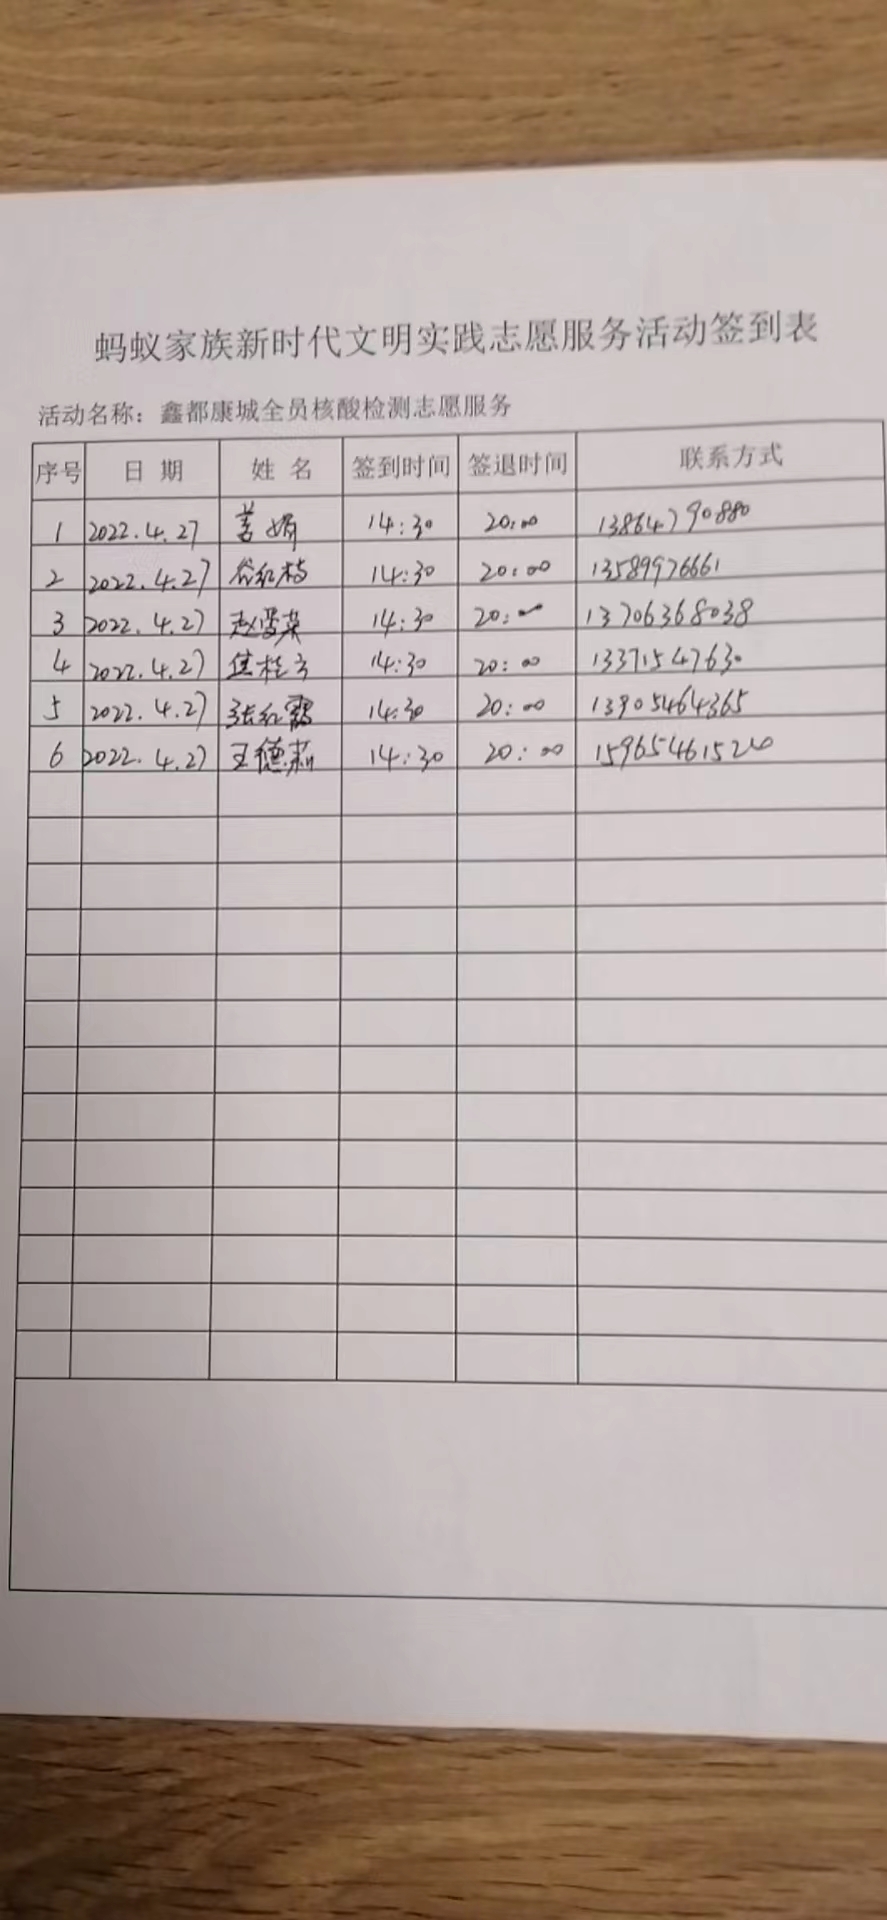 蚂蚁家族新时代文明实践志愿服务活动签到表
活动名称：鑫都康城全员核酸检测志愿服务
序号 日 期 姓 名 签到时间 签退时间 联系方式
1 2022.4.27 姜娟 14:30 20:00 13864790880
2 2022.4.27 谷红梅 14:30 20:00 13589976661
3 2022.4.27 赵雪英 14:30 20:00 13706368038
4 2022.4.27 14:30 20:00 13371547630
5 2022.4.27 张红霞 14:30 20:00 13905464365
6 2022.4.27 王德莉 14:30 20:00 15965461520